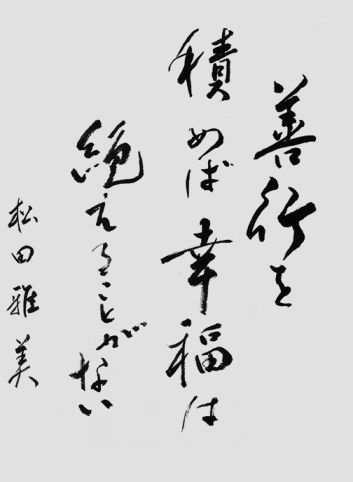 善行を
積めば幸福は
絶えることがない
松田雅美